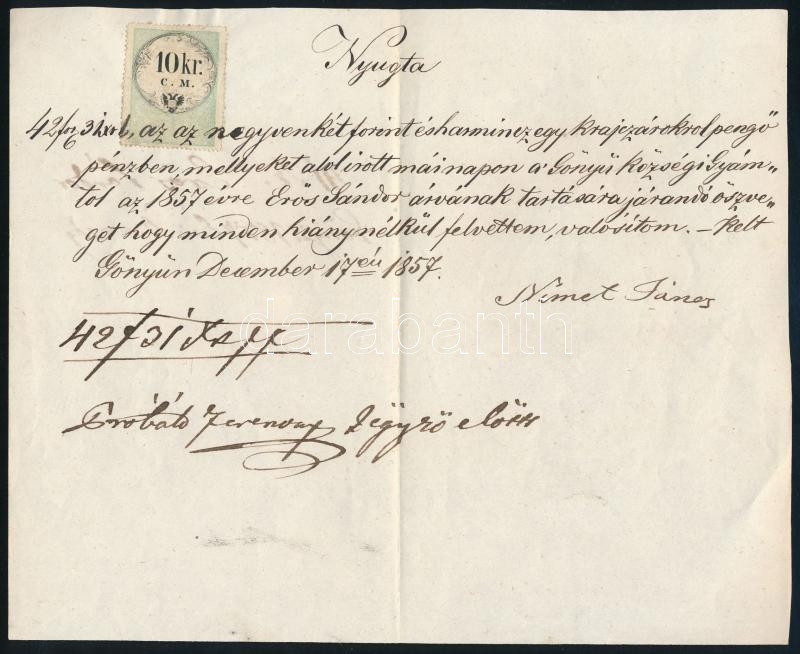 10 kr.
C. M.
Nyugta
42 for 31 xrb, az az negyvenkét forint és harmincz egy krajczárokrol pengő
pénzben, mellyeket alol irott mái napon a' Gönyü községi Gyám=
tol az 1857 évre Erös Sándor árvának tartására járandó öszve=
get hogy minden hiány nélkül felvettem, valósítom. – Kelt
Gönyün December 17én 1857.
Német János
42 f 31 xr pp
Próbáld Ferencz Jegyző elött
darabanth